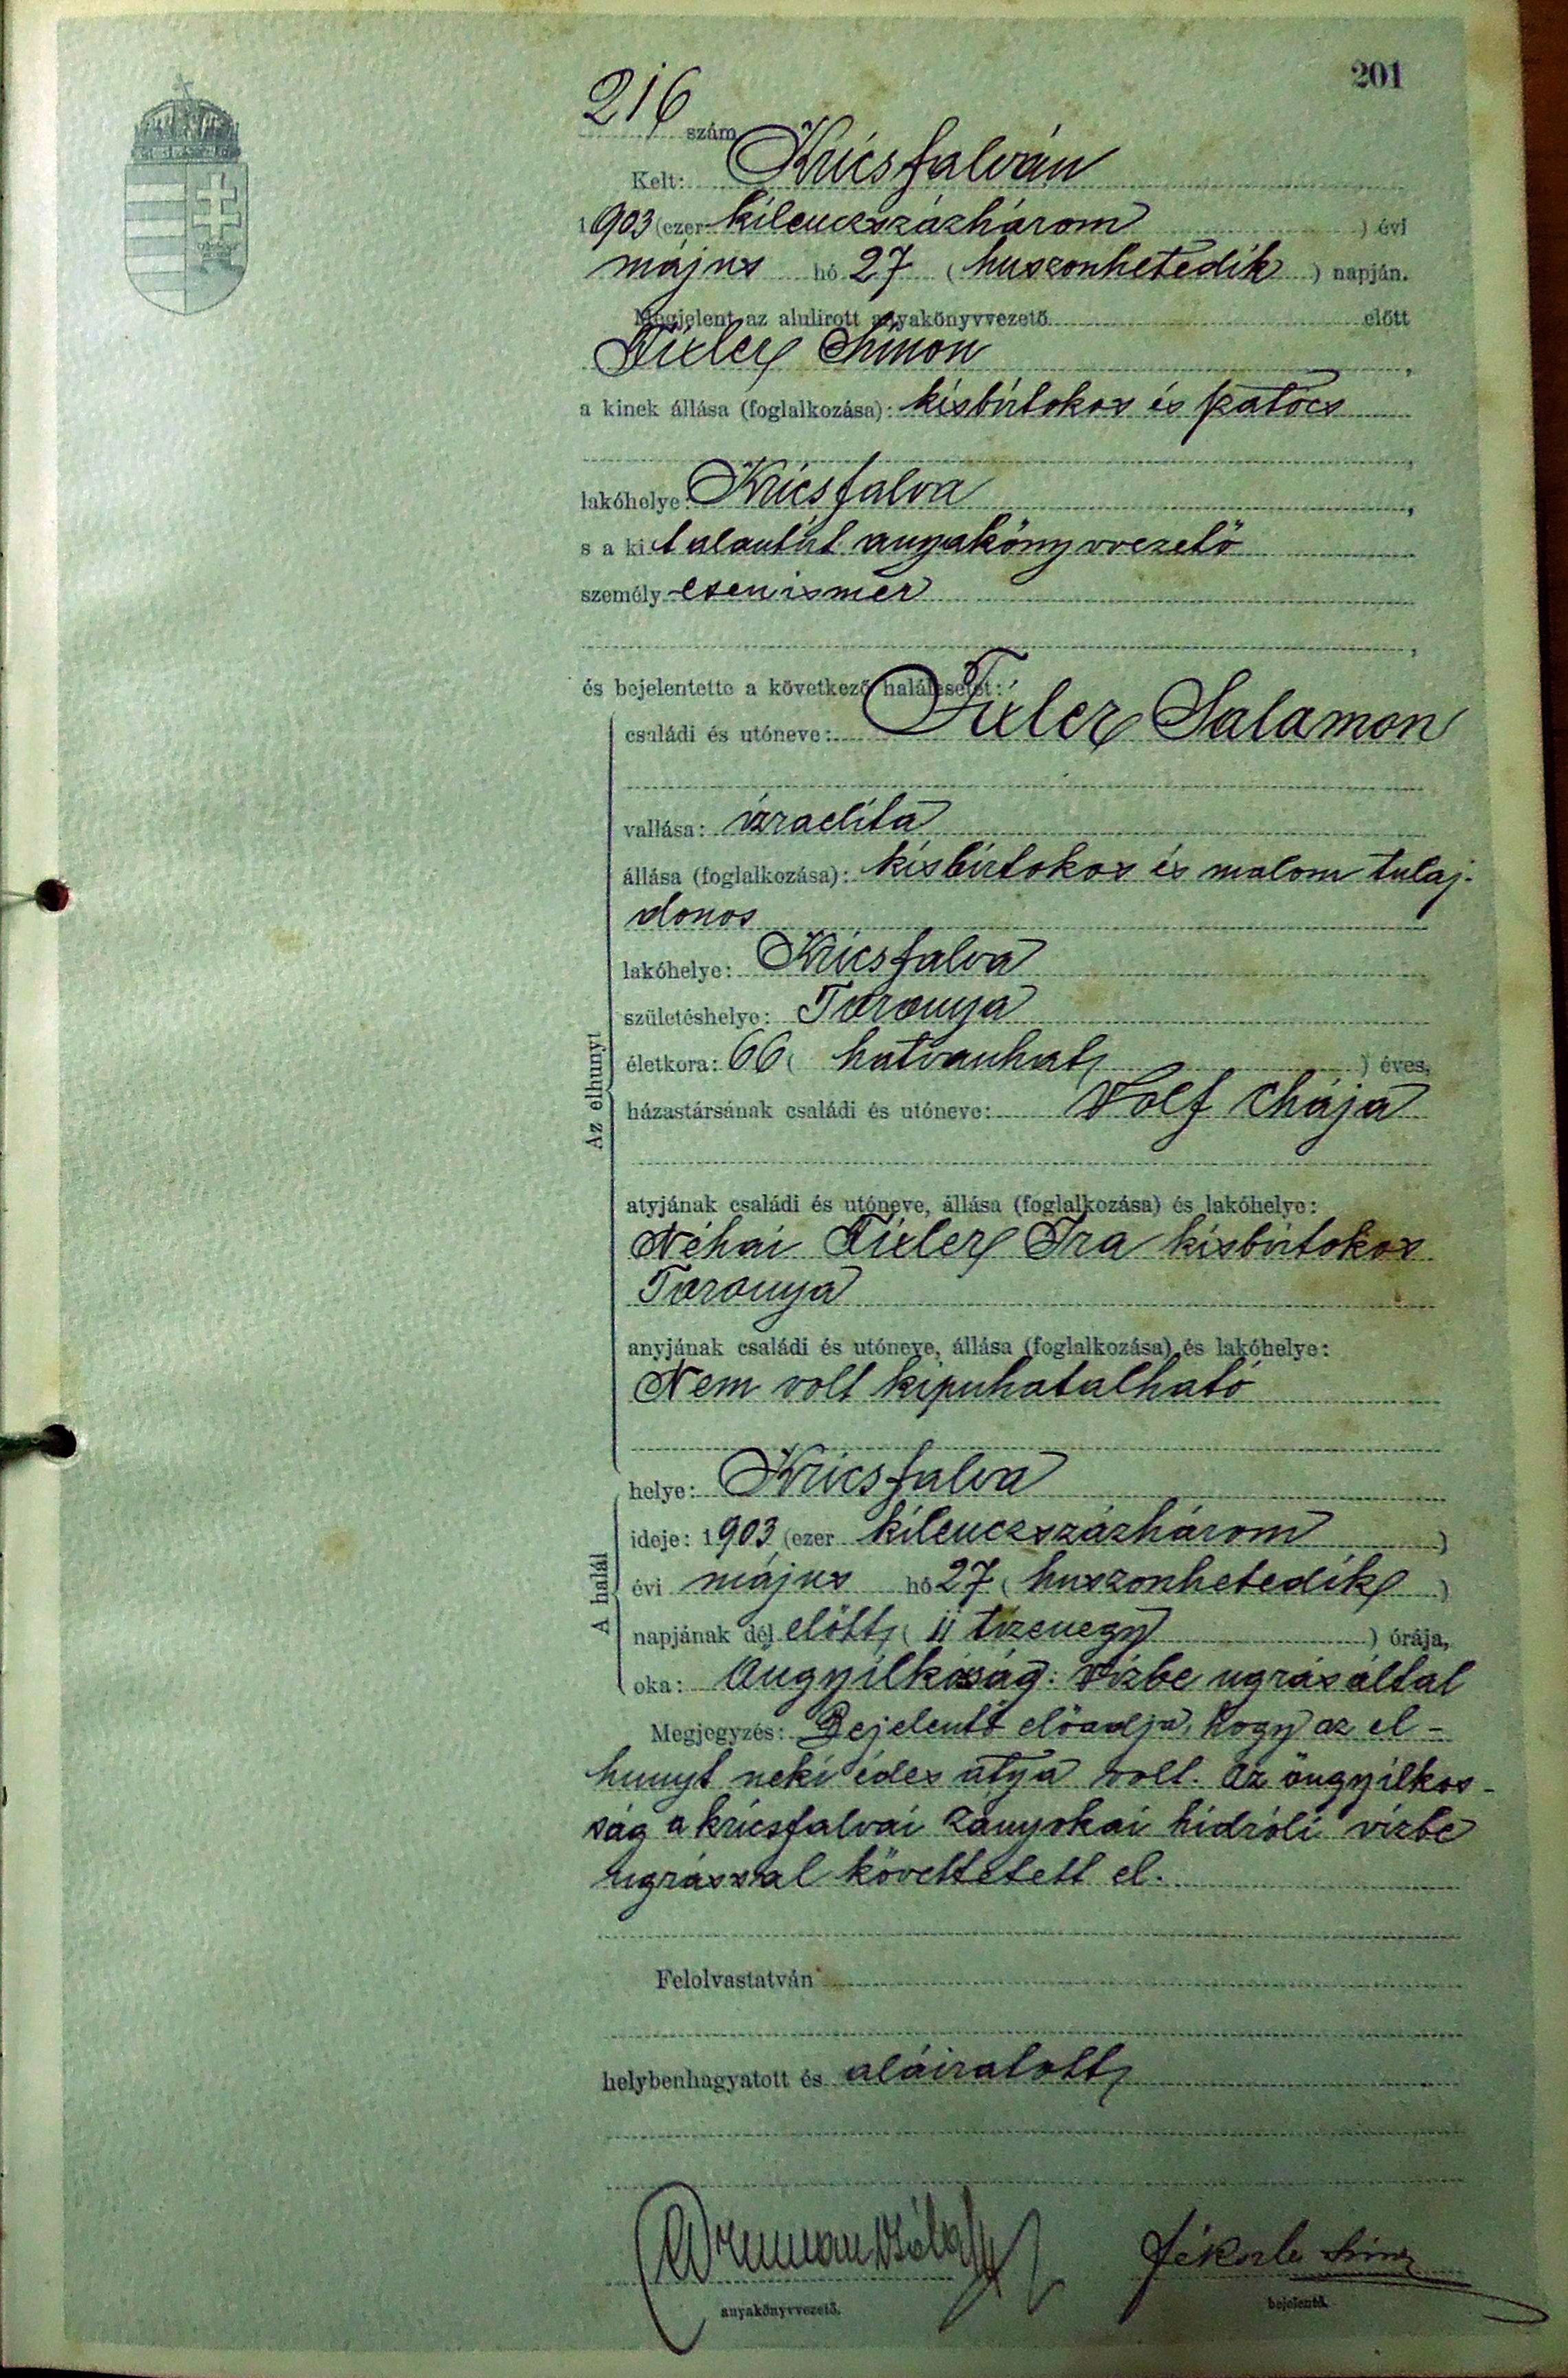 201
216 szám
Kelt: Kricsfalván
1903 (ezer kilenczszázhárom) évi
május hó 27 (huszonhetedik) napján.
Megjelent az alulirott anyakönyvvezető előtt
Fixler Simon,
a kinek állása (foglalkozása): kisbirtokos és szatócs
,
lakóhelye: Kricsfalva,
s a kit alantirt anyakönyvvezető
személyesen ismer
,
és bejelentette a következő halálesetet:
Az elhunyt
családi és utóneve: Fixler Salamon
vallása: izraelita
állása (foglalkozása): kisbirtokos és malom tulaj-
donos
lakóhelye: Kricsfalva
születéshelye: Taronya
életkora: 66 (hatvanhat) éves,
házastársának családi és utóneve: Volf Chája
atyjának családi és utóneve, állása (foglalkozása) és lakóhelye:
Néhai Fixler Sra kisbirtokos
Taronya
anyjának családi és utóneve, állása (foglalkozása) és lakóhelye:
Nem volt kipuhatalható
A halál
helye: Kricsfalva
ideje: 1903 (ezer kilenczszázhárom)
évi május hó 27 (huszonhetedik)
napjának dél előtt (11 tizenegy) órája,
oka: Öngyilkosság: vizbe ugrás által
Megjegyzés: Bejelentő előadja, hogy az el-
hunyt neki édes atyja volt. Az öngyilkos-
ság a kricsfalvai zányokai hidróli vizbe
ugrással követtetett el.
Felolvastatván
helybenhagyatott és aláiratott
anyakönyvvezető.
bejelentő.